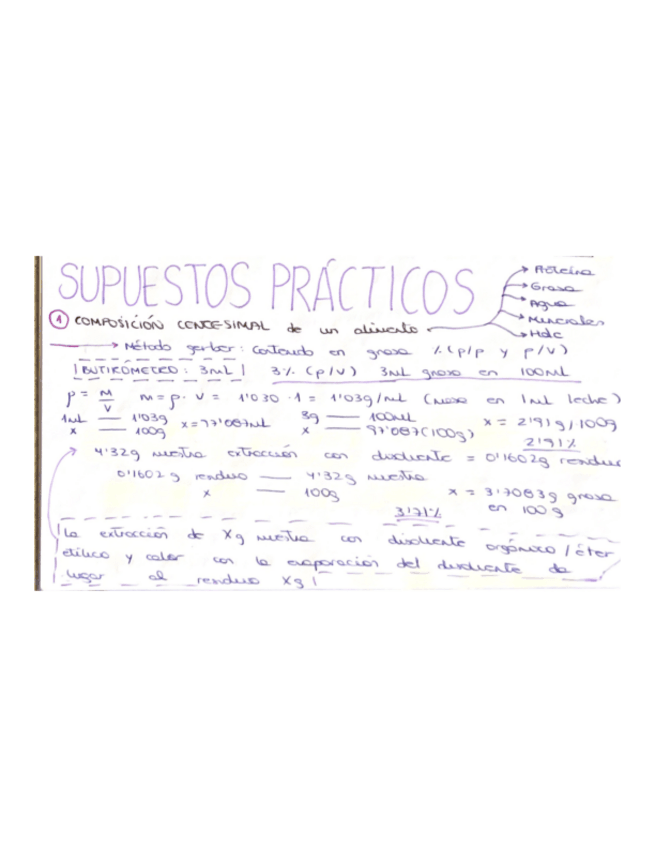 SUPUESTOS PRÁCTICOS
→ Proteína
→ Grasa
→ Agua
→ Minerales
→ Hdc
① COMPOSICIÓN CENTESIMAL de un alimento
→ Método gerber: Contenido en grasa % (p/p y p/v)
BUTIRÓMETRO: 3mL | 3% (p/v) 3mL grasa en 100mL
ρ = M/V m = ρ · V = 1'030 · 1 = 1'03g/mL (masa en 1mL leche)
1mL — 1'03g x = 97'087mL 3g — 100mL x = 2'91g/100g
x — 100g x — 97'087(100g) 2'91%
4'32g muestra extracción con disolvente = 0'1602g residuo
0'1602g residuo — 4'32g muestra
x — 100g x = 3'7083g grasa
3'71% en 100g
La extracción de Xg muestra con disolvente orgánico / éter
etílico y calor con la evaporación del disolvente da
lugar al residuo Xg